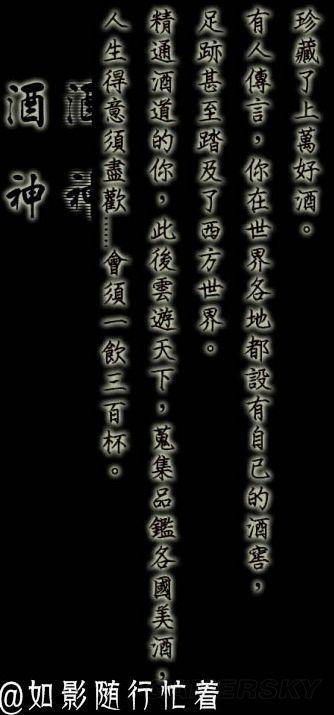 酒神
酒神
人生得意須盡歡……會須一飲三百杯。
精通酒道的你，此後雲遊天下，蒐集品鑑各國美酒，
足跡甚至踏及了西方世界。
有人傳言，你在世界各地都設有自己的酒窖，
珍藏了上萬好酒。
@如影随行忙着